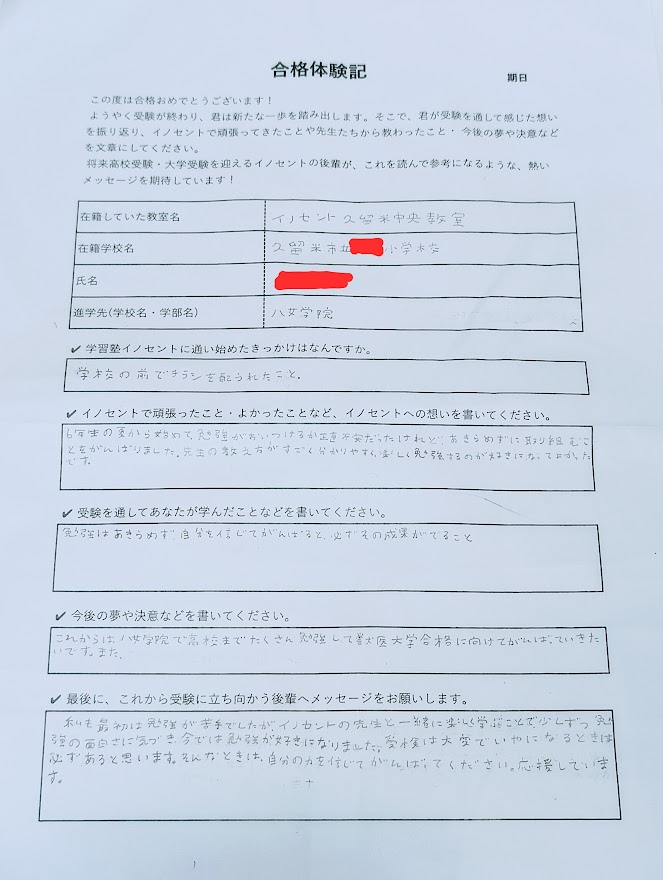 合格体験記
期日
この度は合格おめでとうございます！
ようやく受験が終わり、君は新たな一歩を踏み出します。そこで、君が受験を通して感じた想い
を振り返り、イノセントで頑張ってきたことや先生たちから教わったこと・今後の夢や決意など
を文章にしてください。
将来高校受験・大学受験を迎えるイノセントの後輩が、これを読んで参考になるような、熱い
メッセージを期待しています！
在籍していた教室名 イノセント久留米中央教室
在籍学校名 久留米市立 小学校
氏名
進学先(学校名・学部名) 八女学院
✔ 学習塾イノセントに通い始めたきっかけはなんですか。
学校の前でチラシを配られたこと。
✔ イノセントで頑張ったこと・よかったことなど、イノセントへの想いを書いてください。
6年生の夏から始めて、勉強がおいつけるか正直不安だったけれど、あきらめずに取り組むこ
とをがんばりました。先生の教え方がすごく分かりやすく、楽しく勉強するのが好きになってよかった
です。
✔ 受験を通してあなたが学んだことなどを書いてください。
勉強はあきらめず、自分を信じてがんばると、必ずその成果がでること
✔ 今後の夢や決意などを書いてください。
これからは、八女学院で高校までたくさん勉強して獣医大学合格に向けてがんばっていきた
いです。また、
✔ 最後に、これから受験に立ち向かう後輩へメッセージをお願いします。
私も最初は勉強が苦手でしたが、イノセントの先生と一緒に楽しく学ぶことで少しずつ勉
強の面白さに気づき、今では勉強が好きになりました。受検は大変でいやになるときは
必ずあると思います。そんなときは、自分の力を信じてがんばってください。応援していま
す。